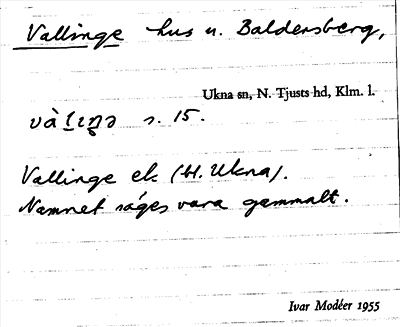 Vallinge hus u. Baldersberg,
Ukna sn, N. Tjusts hd, Klm. l.
s. 15.
Vallinge ek (bl. Ukna).
Namnet säges vara gammalt.
Ivar Modéer 1955